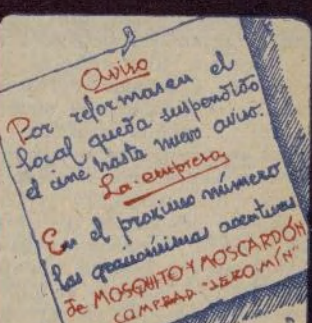 Aviso
Por reformas en el
local queda suspendido
el cine hasta nuevo aviso.
La empresa
En el proximo número
las graciosísimas aventuras
de MOSQUITO Y MOSCARDÓN
COMPRAD "JEROMÍN"